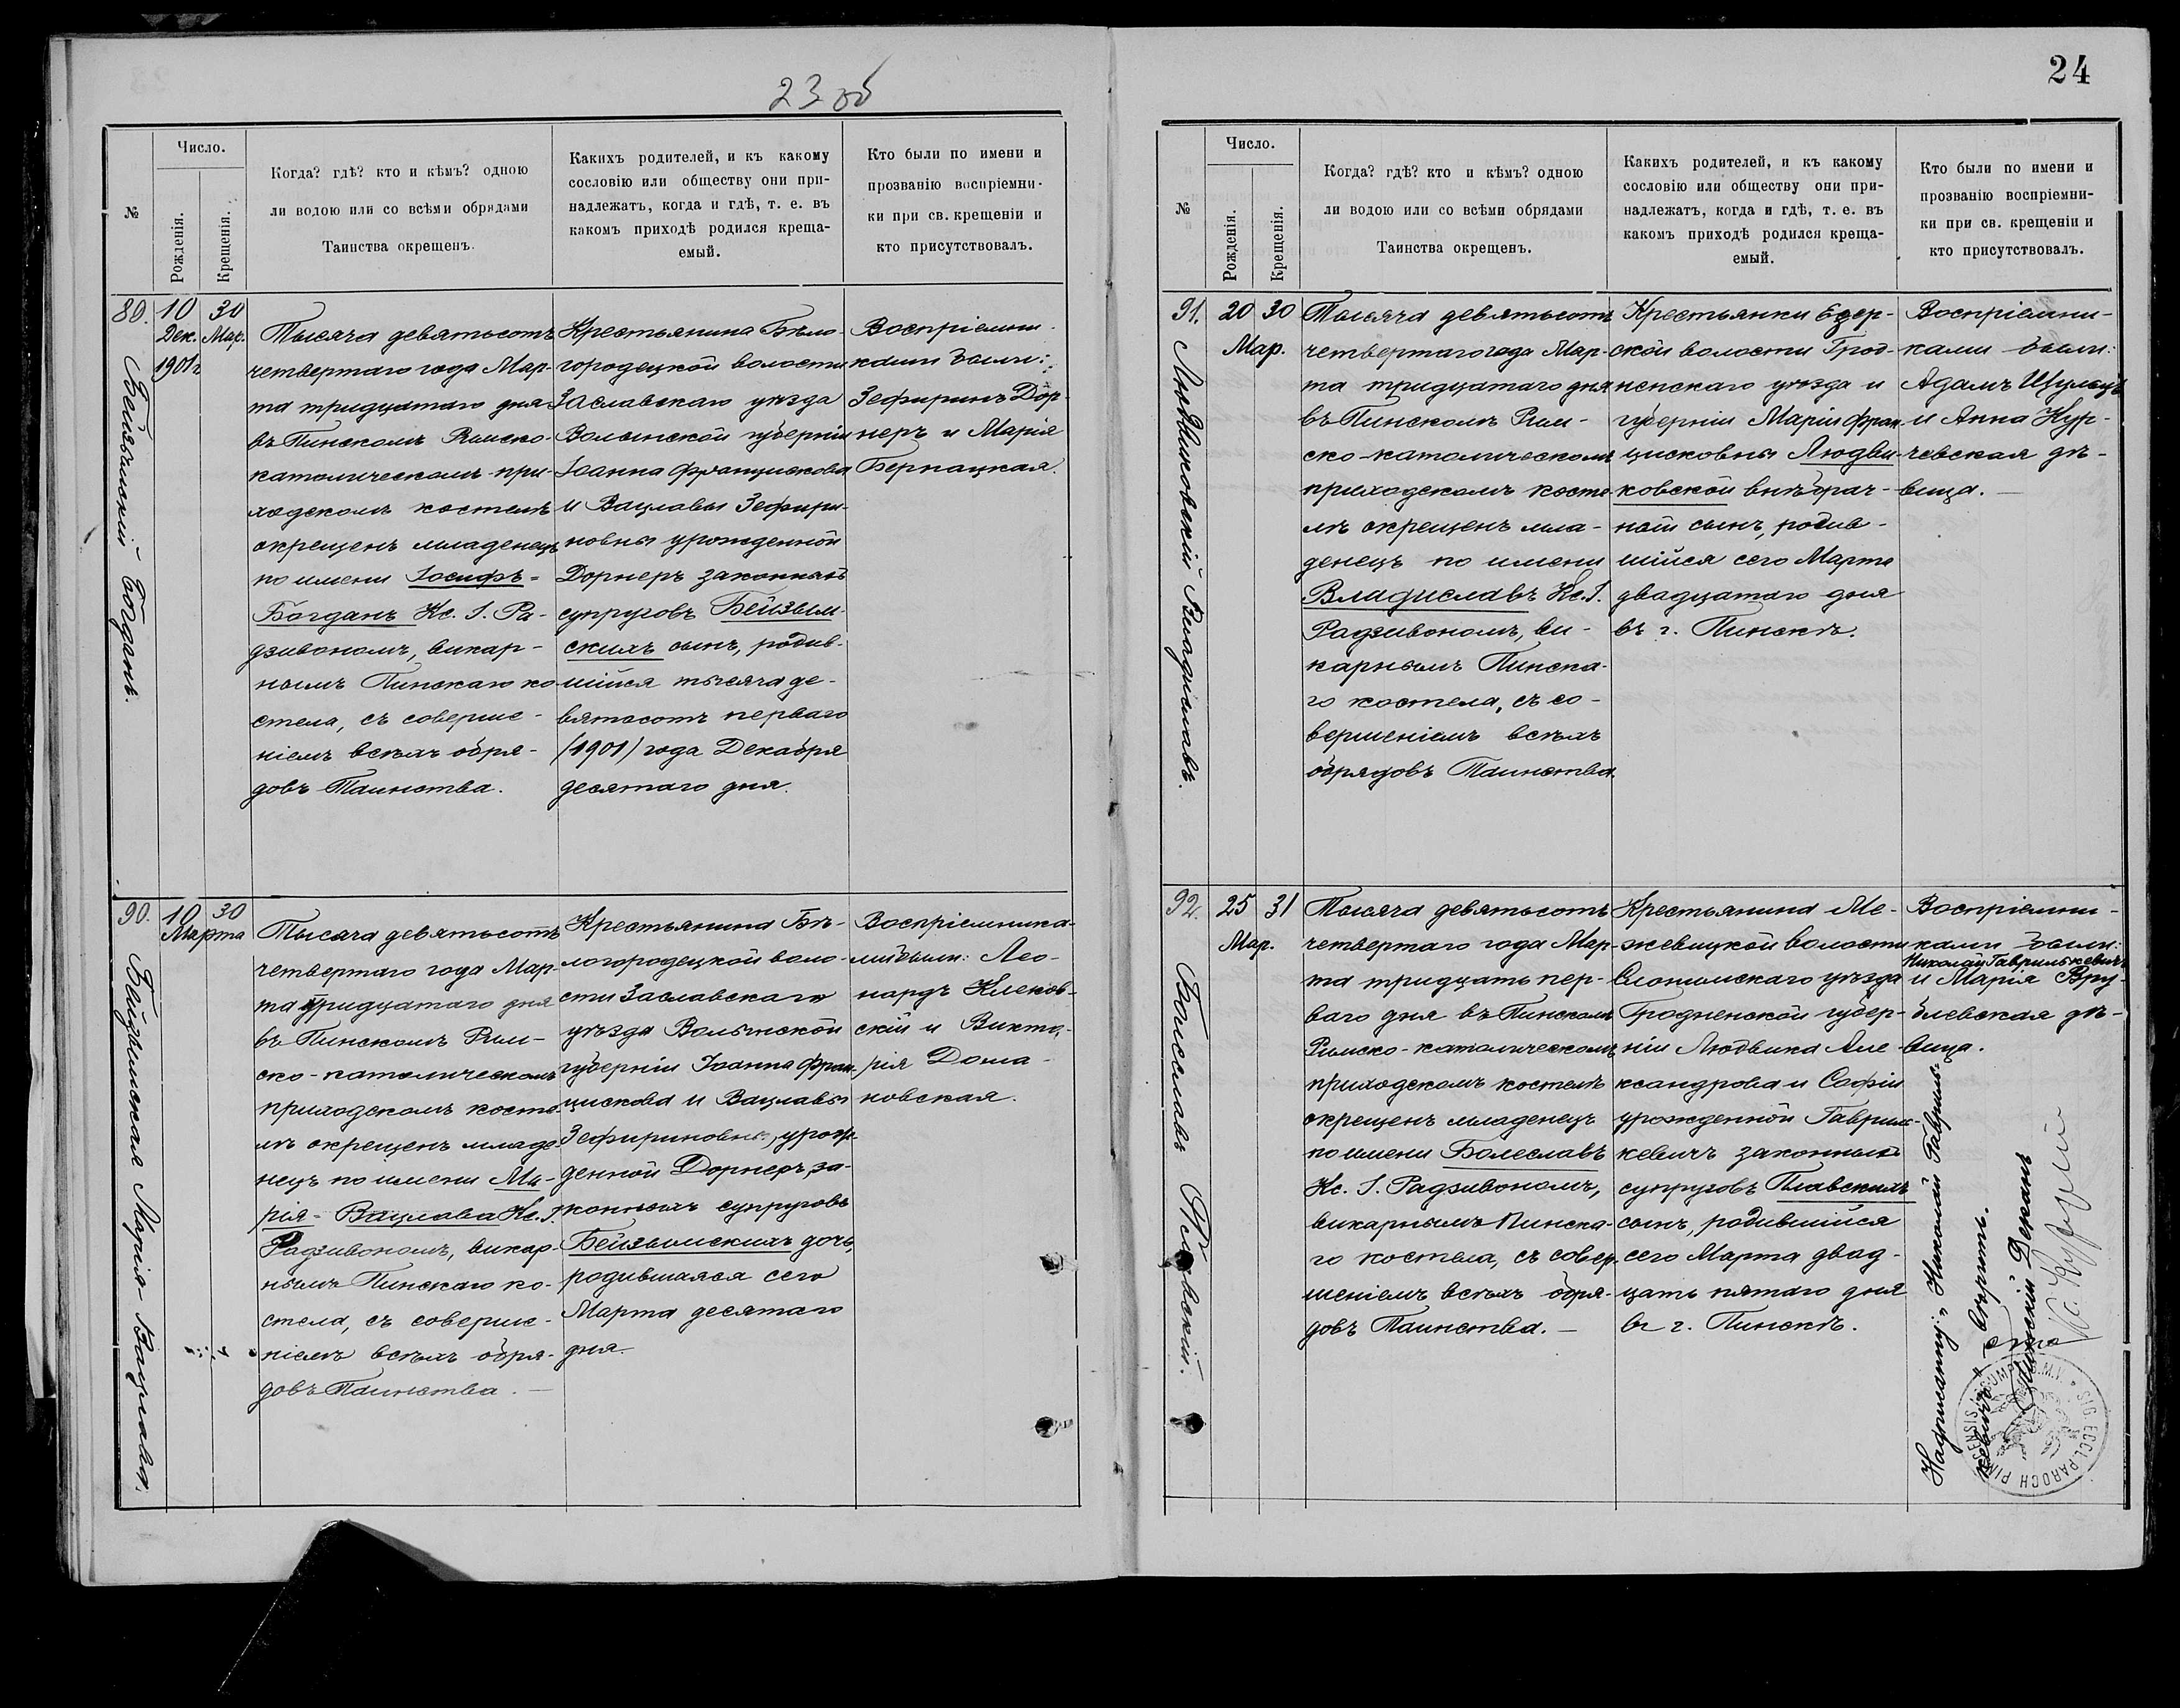 23 об
№
Число.
Рожденія.
Крещенія.
Когда? гдѣ? кто и кѣмъ? одною
ли водою или со всѣми обрядами
Таинства окрещенъ.
Какихъ родителей, и къ какому
сословію или обществу они при-
надлежатъ, когда и гдѣ, т. е. въ
какомъ приходѣ родился креща-
емый.
Кто были по имени и
прозванію воспріемни-
ки при св. крещеніи и
кто присутствовалъ.
80.
Бейзымскій Богданъ.
10
Дек.
1901 г
30
Мар.
Тысяча девятьсотъ
четвертаго года Мар-
та тридцатаго дня
въ Пинскомъ Римско-
католическомъ при-
ходскомъ костелѣ
окрещенъ младенецъ
по имени Іосифъ-
Богданъ Кс. І. Ра-
дзивономъ, викар-
нымъ Пинскаго ко-
стела, съ соверше-
ніемъ всѣхъ обря-
довъ Таинства.
Крестьянина Бѣло-
городецкой волости
Заславскаго уѣзда
Волынской губерніи
Іоанна Францискова
и Вацлавы Зефири-
новны урожденной
Дорнеръ законныхъ
супруговъ Бейзым-
скихъ сынъ, родив-
шійся тысяча де-
вятьсотъ перваго
(1901) года Декабря
десятаго дня.
Воспріемни-
ками были:
Зефиринъ Дор-
неръ и Марія
Бернацкая.
90.
Бейзымская Марія-Вацлава.
10 30
Марта
Тысяча девятьсотъ
четвертаго года Мар-
та тридцатаго дня
въ Пинскомъ Рим-
ско-католическомъ
приходскомъ косте-
лѣ окрещенъ младе-
нецъ по имени Ма-
рія-Вацлава Кс. І.
Радзивономъ, викар-
нымъ Пинскаго ко-
стела, съ соверше-
ніемъ всѣхъ обря-
довъ Таинства.—
Крестьянина Бѣ-
логородецкой воло-
сти Заславскаго
уѣзда Волынской
губерніи Іоанна Фран-
цискова и Вацлавы
Зефириновны, урож-
денной Дорнеръ, за-
конныхъ супруговъ
Бейзымскихъ дочь,
родившаяся сего
Марта десятаго
дня.
Воспріемника-
ми были: Лео-
нардъ Клеков-
скій и Викто-
рія Дома-
новская.
24
№
Число.
Рожденія.
Крещенія.
Когда? гдѣ? кто и кѣмъ? одною
ли водою или со всѣми обрядами
Таинства окрещенъ.
Какихъ родителей, и къ какому
сословію или обществу они при-
надлежатъ, когда и гдѣ, т. е. въ
какомъ приходѣ родился креща-
емый.
Кто были по имени и
прозванію воспріемни-
ки при св. крещеніи и
кто присутствовалъ.
91.
Людвиковскій Владиславъ.
20 30
Мар.
Тысяча девятьсотъ
четвертаго года Мар-
та тридцатаго дня
въ Пинскомъ Рим-
ско-католическомъ
приходскомъ косте-
лѣ окрещенъ мла-
денецъ по имени
Владиславъ Кс. І.
Радзивономъ, ви-
карнымъ Пинска-
го костела, съ со-
вершеніемъ всѣхъ
обрядовъ Таинства.
Крестьянки Езер-
ской волости Грод-
ненскаго уѣзда и
губерніи Маріи Фран-
цисковны Людви-
ковской внѣбрач-
ный сынъ, родив-
шійся сего Марта
двадцатаго дня
въ г. Пинскѣ.
Воспріемни-
ками были:
Адамъ Шульцъ
и Анна Кур-
чевская дѣ-
вица.—
92.
Болеславъ
25 31
Мар.
Тысяча девятьсотъ
четвертаго года Мар-
та тридцать пер-
ваго дня въ Пинскомъ
Римско-католическомъ
приходскомъ костелѣ
окрещенъ младенецъ
по имени Болеславъ
Кс. І. Радзивономъ,
викарнымъ Пинска-
го костела, съ совер-
шеніемъ всѣхъ обря-
довъ Таинства.—
Крестьянина Ме-
жевицкой волости
Слонимскаго уѣзда
Гродненской губер-
ніи Людвика Але-
ксандрова и Софіи
урожденной Гаврил-
кевичъ законныхъ
супруговъ Плавскихъ
сынъ, родившійся
сего Марта двад-
цать пятаго дня
въ г. Пинскѣ.
Воспріемни-
ками были:
Николай Гаврилькевичъ
и Марія Вру-
блевская дѣ-
вица.
Надписанному: „Николай Гавриль-
кевичъ" вѣрить.
Пинскій Деканъ
SIG. ECCL. PAROCH PINSENSIS